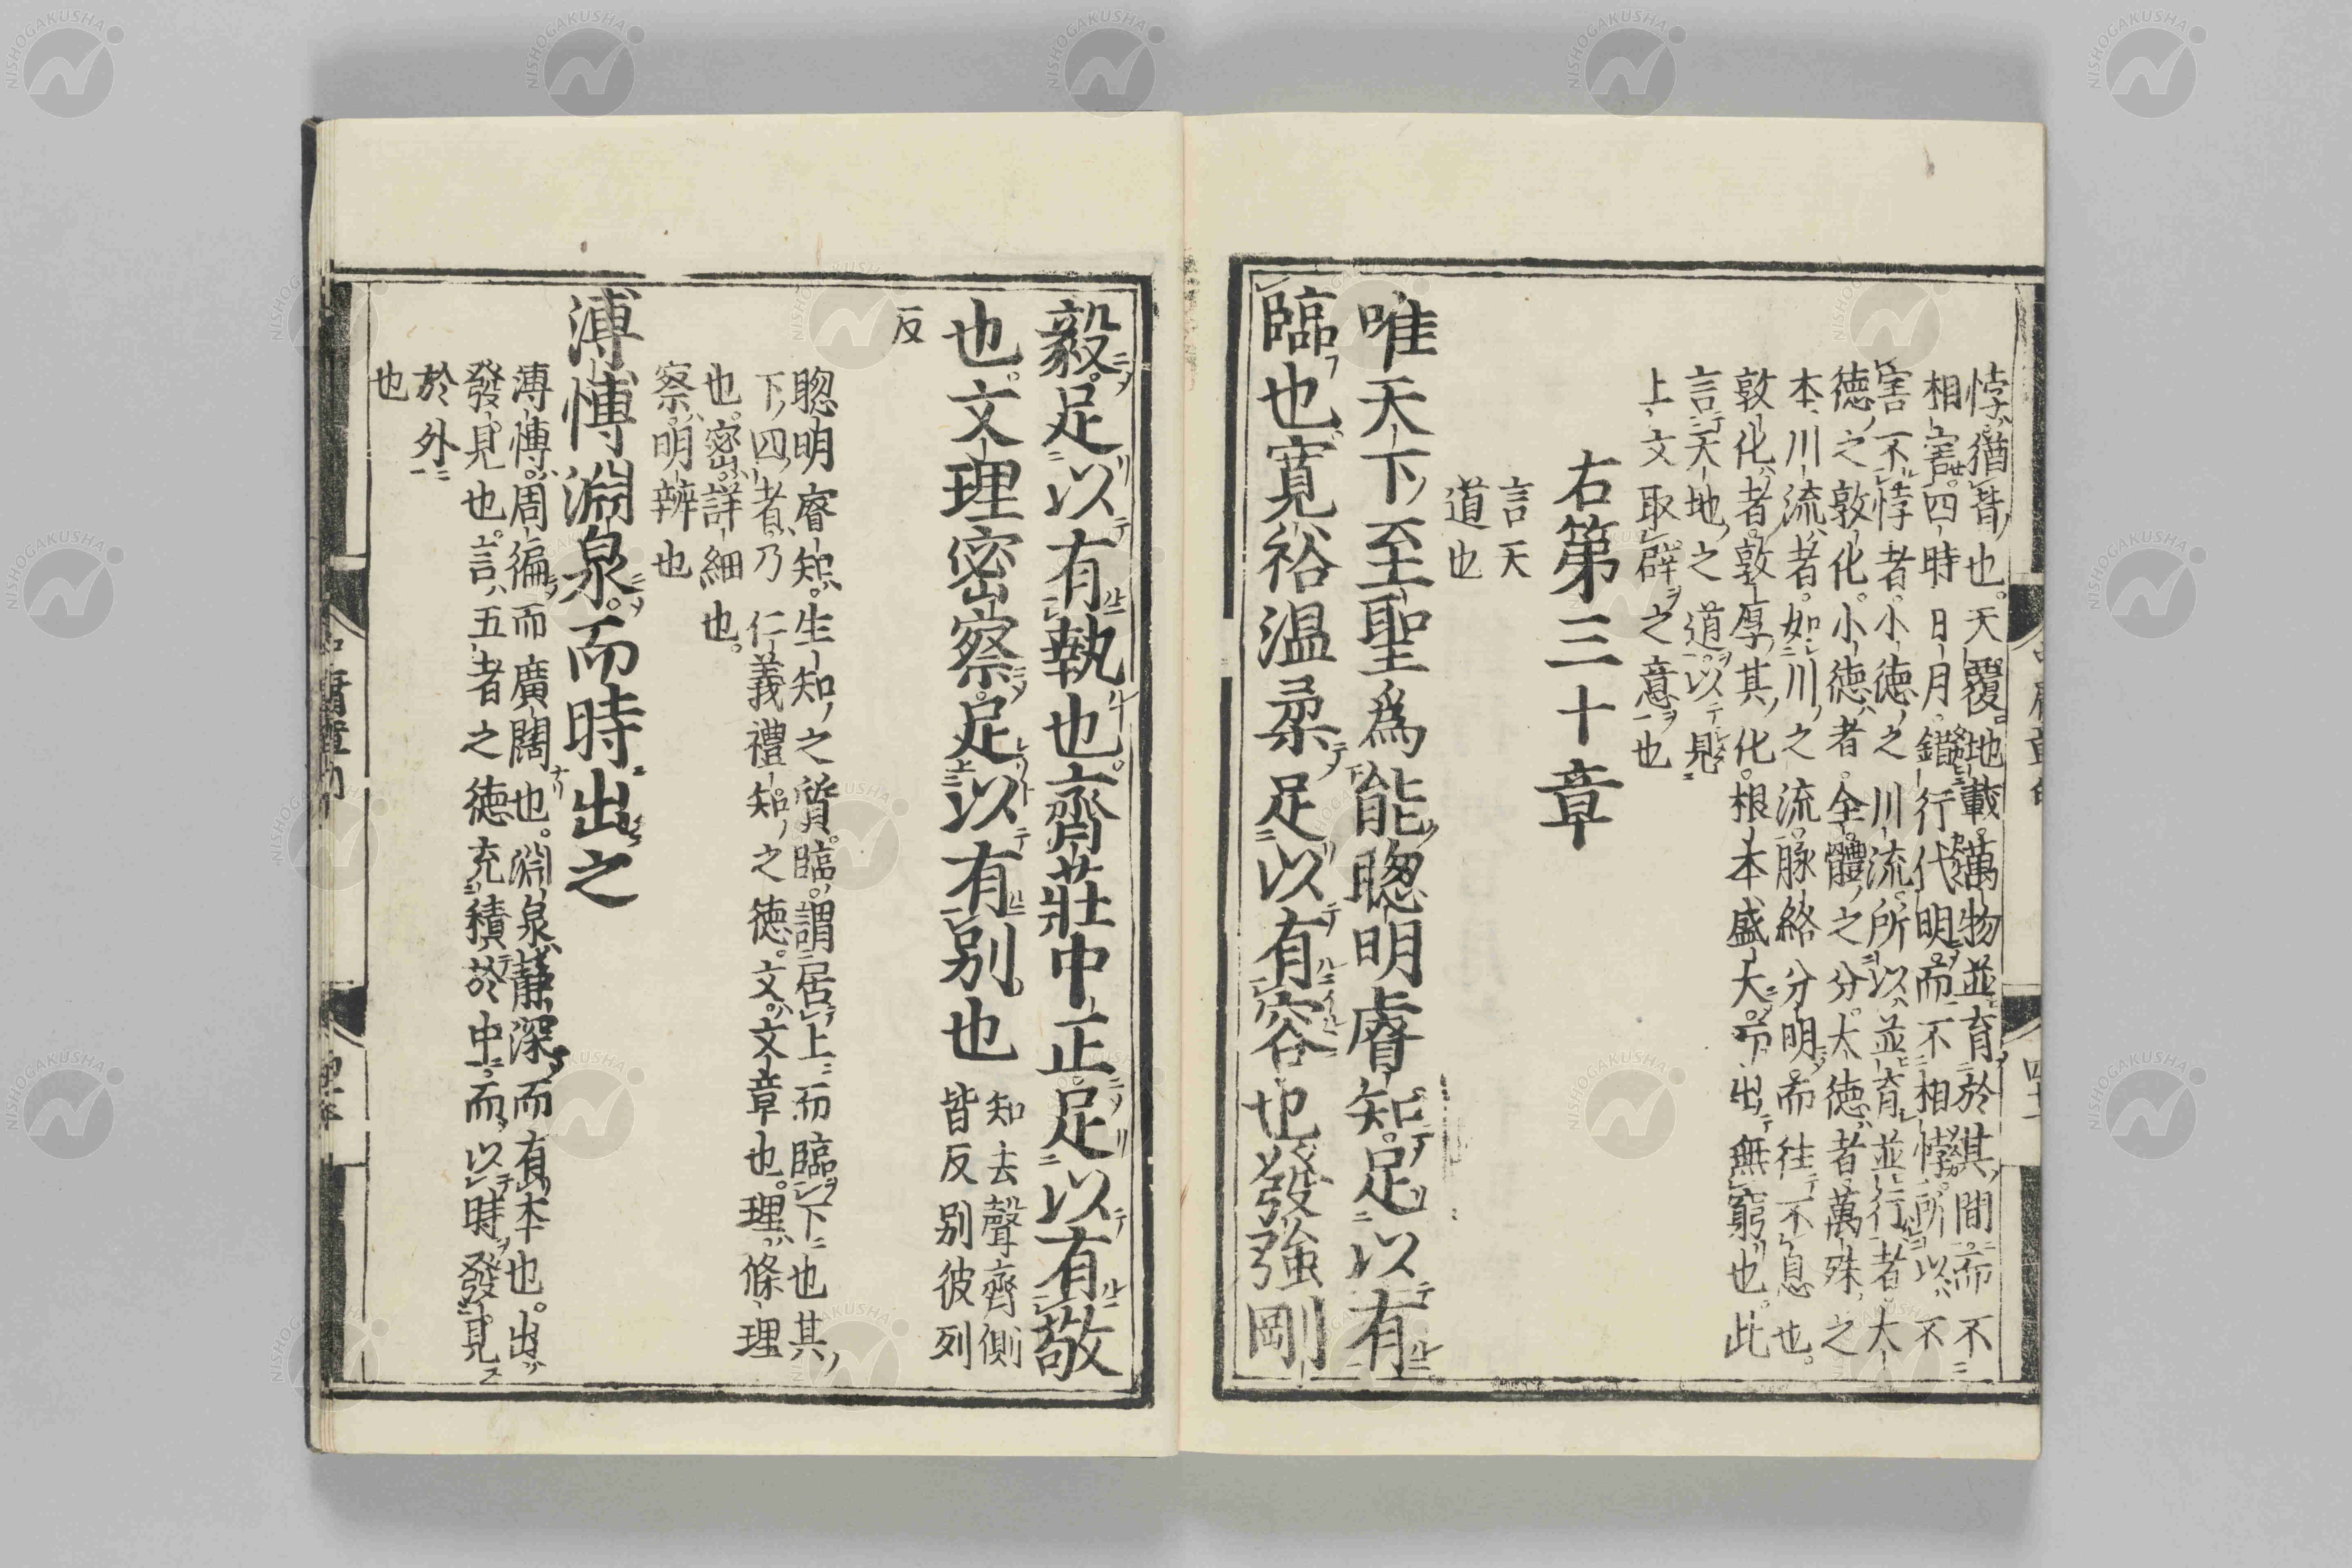 悖猶背也天覆地載萬物並育於其間而不
相害四時日月錯行代明而不相悖所以不
害不悖者小德之川流所以並育並行者大
德之敦化小德者全體之分大德者萬殊之
本川流者如川之流脉絡分明而徃不息也
敦化者敦厚其化根本盛大而出無窮也此
言天地之道以見
上文取辟之意也
右第三十章
言天
道也
唯天下至聖爲能聰明睿知足以有
臨也寬裕温柔足以有容也發強剛
毅足以有執也齊莊中正足以有敬
也文理密察足以有别也
知去聲齊側
皆反别彼列
反
聰明睿知生知之質臨謂居上而臨下也其
下四者乃仁義禮知之德文文章也理條理
也密詳細也
察明辨也
溥愽淵泉而時出之
溥愽周徧而廣闊也淵泉靜深而有本也出
發見也言五者之德充積於中而以時發見
於外
也
NISHOGAKUSHA